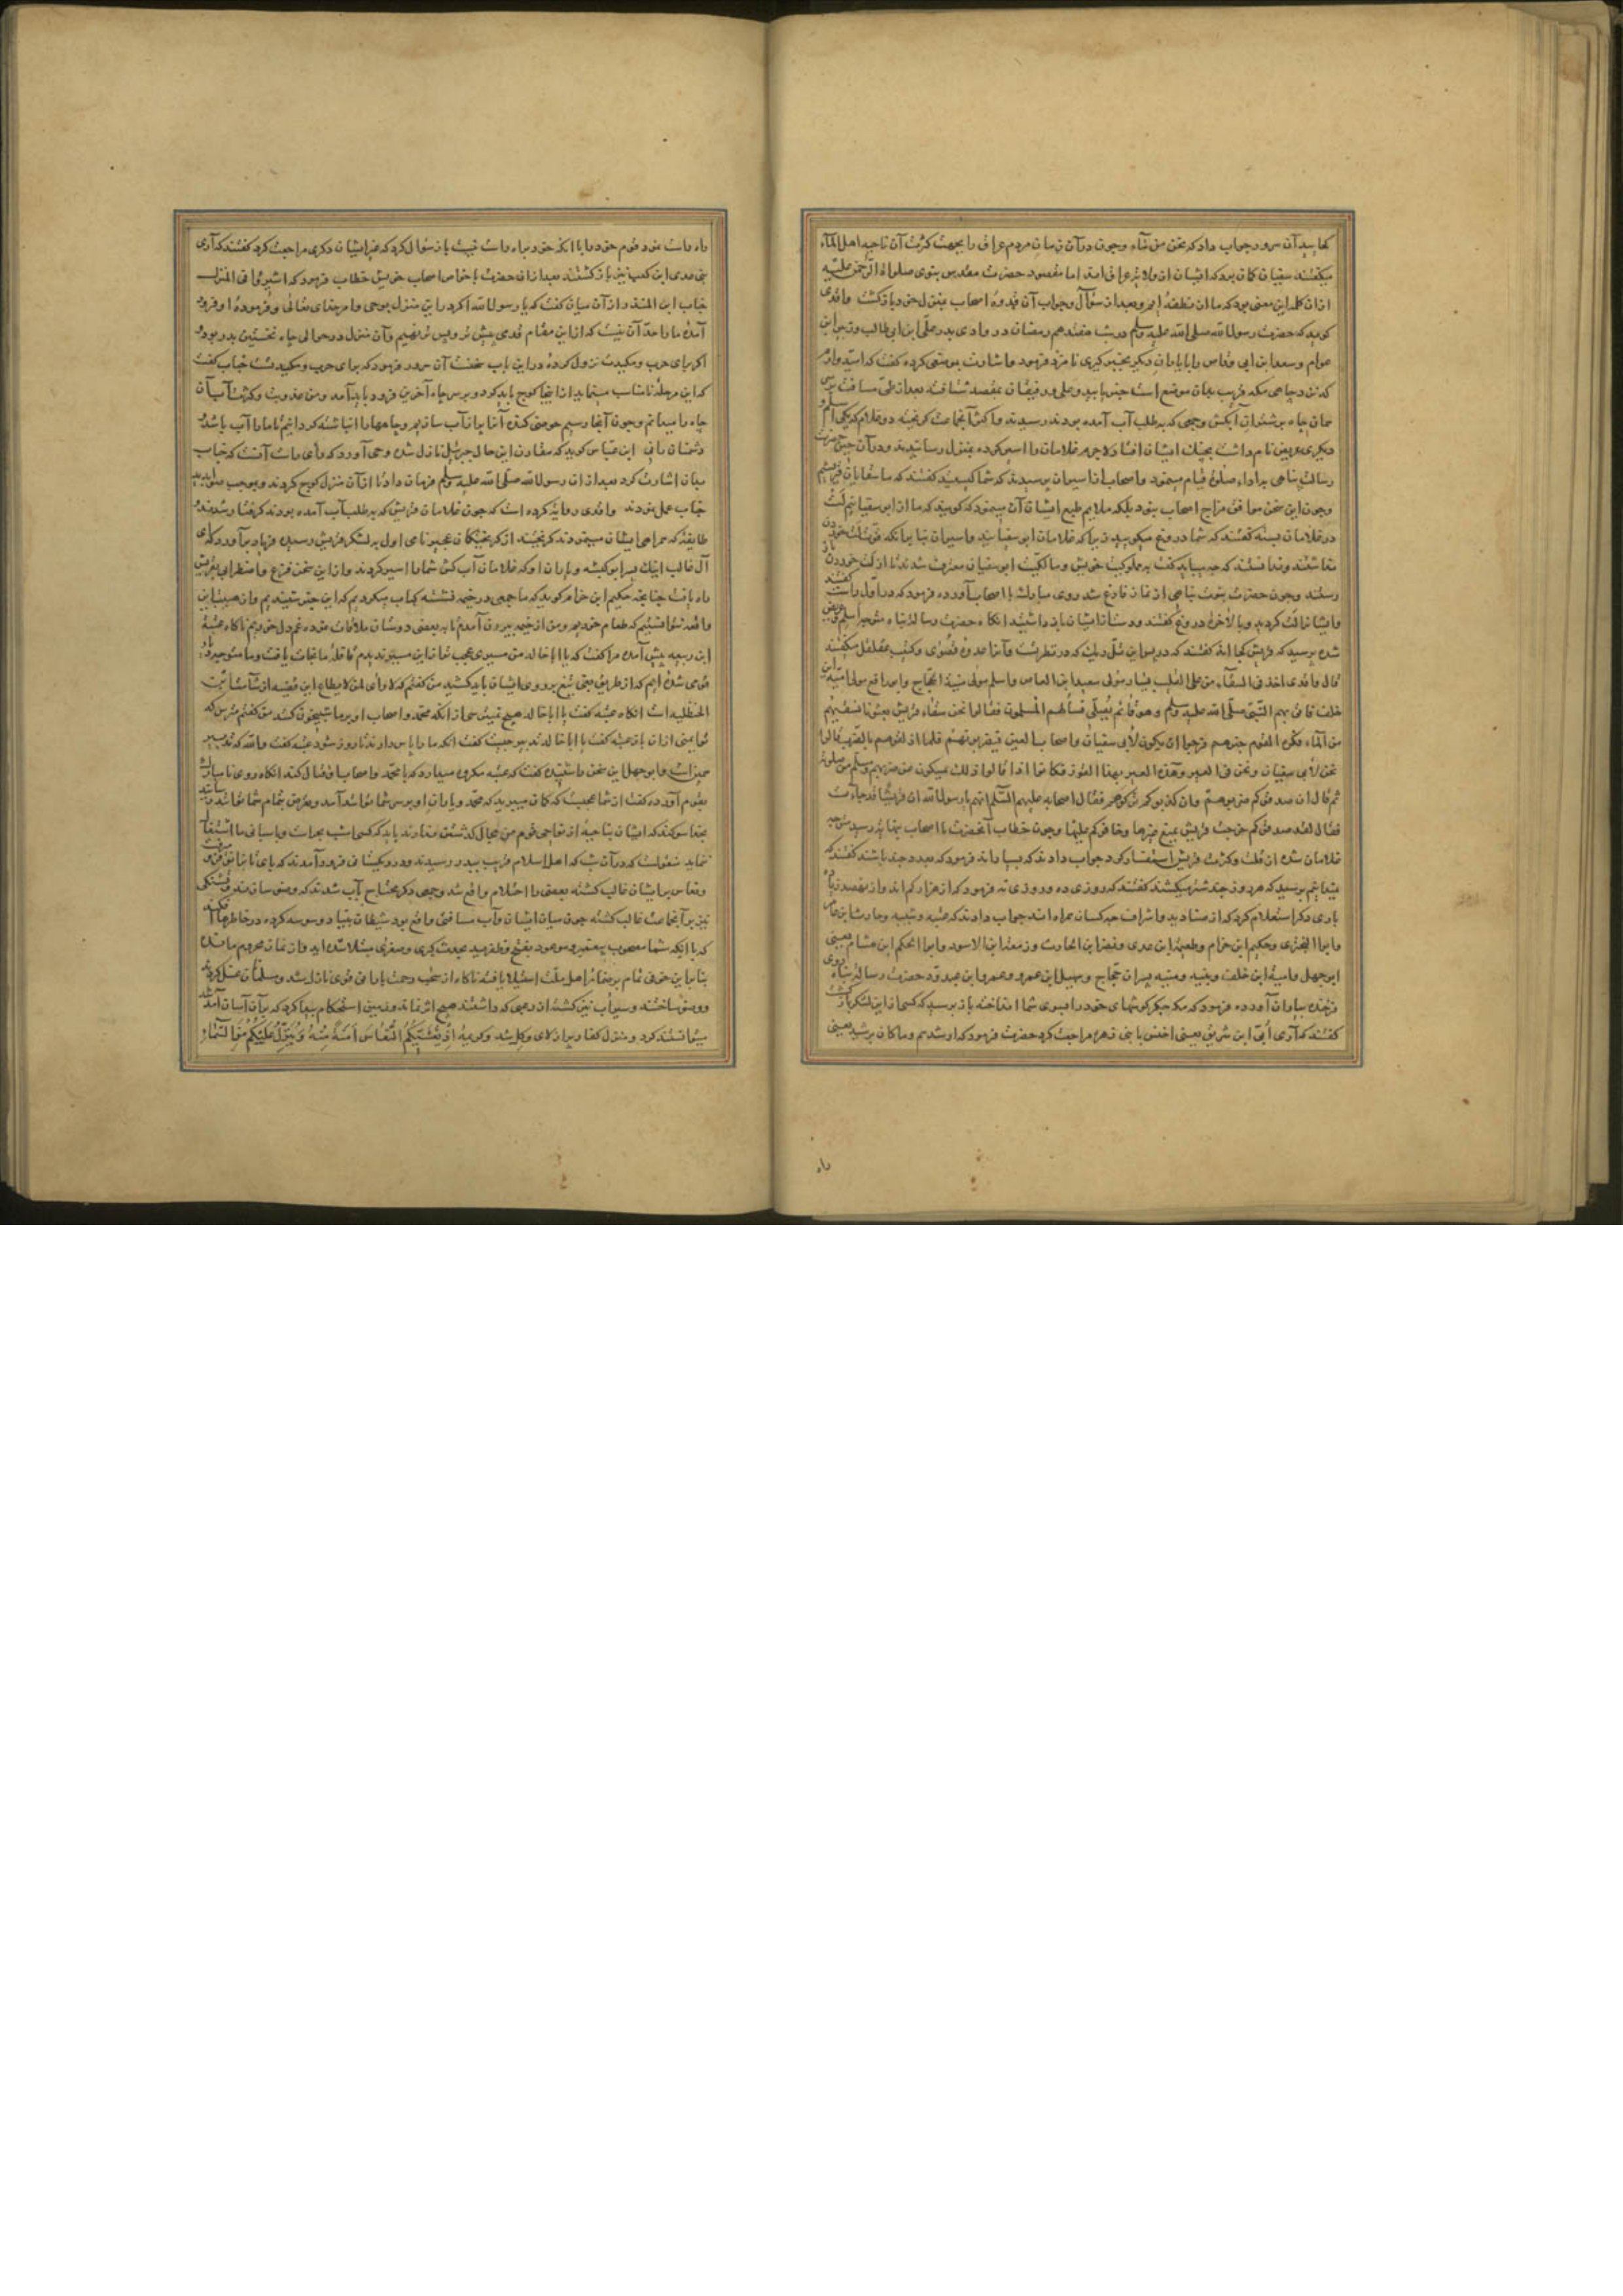 کجایید آن سرور جواب داد که نحن من ماء و چون در آن زمان مردم عراق را بجهت کثرت آب آن ناحیه اهل الماء
میگفتند سفیان کمان برد که ایشان از ولایت عراق اند اما مقصود حضرت مقدس نبوی صلوات الرحمن علیه
ازان کلمه این معنی بود که ما از نطفه ایم و بعد از سؤال و جواب آن قدوه اصحاب بمنزل خود بازکشت واقدی
کوید که حضرت رسول الله صلی الله علیه وسلم در شب هفدهم رمضان در وادی بدر علی ابن ابی طالب و زبیر ابن
عوام و سعد ابن ابی وقاص را با یاران دیکر بخبرکیری نامزد فرمود و اشارت بموضعی کرده کفت که امیدوارم
که نزد چاهی که قریب بدان موضع است خبر یابید و علی و رفیقان بمقصد شتافته بعد از طی مسافت بر سر
همان چاه بر شتران آبکش و جمعی که بطلب آب آمده بودند رسیدند و اکثر آن جماعت کریخته دو غلام که یکی اسلم
و دیکری عریض نام داشت بچنک ایشان افتاد لاجرم غلامان را اسیر کرده بمنزل رسانیدند و در آن حین حضرت
رسالت پناهی به اداء صلوة قیام مینمود و اصحاب از اسیران پرسیدند که شما کیستید کفتند که ما سقایان قریشیم
و چون این سخن موافق مزاج اصحاب نبود بلکه ملایم طبع ایشان آن مینمود که کویند که ما از ابو سفیانیم لت
در غلامان بسته کفتند که شما دروغ میکویید زیرا که غلامان ابو سفیانید و اسیران بنا برآنکه قوت لت خوردن
نداشتند و ندانستند که چه میباید کفت به مملوکیت خویش و مالکیت ابو سفیان معترف شدند تا از لت خوردن باز
رستند و چون حضرت نبوت پناهی از نماز فارغ شد روی مبارک با اصحاب آورده فرمود که در اول راست کفتند
و ایشان را لت کردید و بالاخره دروغ کفتند و دست از ایشان باز داشتید انکاه حضرت رسالت پناه متوجه اسلم و عریض
شده پرسید که قریش کجا اند کفتند که در پس این تل ریک که در نظرست و آنرا عدوه قصوی و کثیب عقنقل میکفتند
قال واقدی اخذ فی السقاء من علی القلیب یسار مولی سعید ابن العاص و اسلم مولی منبه الحجاج و ابو رافع مولی امیة ابن
خلف فاتی بهم النبی صلی الله علیه وسلم و هو قائم یصلی فسألهم المسلمون فقالوا نحن سقاء قریش بعثونا نسقیهم
من الماء فکره القوم خبرهم و رجوا ان یکون لابی سفیان و اصحاب العیر فیضربونهم فلما اذلقوهم بالضرب قالوا
نحن لابی سفیان و نحن فی العیر و هذه العیر بهذا القوز فکانوا اذا قالوا ذلک یمسکون عن ضربهم و سلم من صلوته
ثم قال ان صدقوکم ضربتموهم و ان کذبوکم ترکتموهم فقال اصحابه علیهم السلام انهم یا رسول الله ان قریشا قد جاءت
فقال لقد صدقوکم خرجت قریش یمنع عیرها و خافوکم علیها و چون خطاب آنحضرت با اصحاب بنهایت رسید متوجه
غلامان شده از قلت و کثرت قریش استفسار کرد جواب دادند که بسیاراند فرمود که بعدد چند باشند کفتند که
نمیدانیم پرسید که هر روز چند شتر میکشند کفتند که روزی ده و روزی نه فرمود که از هزار کم اند و از نهصد زیاده
باری دیکر استعلام کرد که از صنادید و اشراف چه کسان همراه اند جواب دادند که عتبه و شیبه و حارث ابن عامر
و ابو البختری و حکیم ابن خزام و طعیمه ابن عدی و نضر ابن الحارث و زمعه ابن الاسود و ابو الحکم ابن هشام یعنی
ابو جهل و امیه ابن خلف و نبیه و منبه پسران حجاج و سهیل ابن عمرو و عمرو ابن عبدود حضرت رسالت پناه روی
فرخنده بیاران آورده فرمود که مکه جکرکوشهای خود را بسوی شما انداخته باز پرسید که کسی از این لشکر بازکشت
کفتند که آری ابی ابن شریق یعنی اخنس با بنی زهره مراجعت کرد حضرت فرمود که ارشدهم و ما کان برشید یعنی
راه
راه راست نمود قوم خود را با انکه خود براه راست نیست باز سؤال کرد که غیر ایشان دکری مراجعت کرد کفتند که آری
بنی عدی ابن کعب نیز بازکشتند بعد ازان حضرت با خواص اصحاب خویش خطاب فرمود که اشیروا فی المنزل
خباب ابن المنذر ازان میان کفت که یا رسول الله اکر در این منزل بوحی و امر خدای تعالی و فرموده او فرود
آمده ما را حد آن نیست که از این مقام قدمی پیش تر و پس تر نهیم و آن منزل در حوالی چاه نخستین بدر بود و
اکر برای حرب و مکیدت نزول کرده در این باب سخنست آن سرور فرمود که برای حرب و مکیدتست خباب کفت
که این مرحله نامناسب مینماید از اینجا کوچ باید کرد و بر سر چاه آخرین فرود باید آمد و من عذوبت و کثرت آب آن
چاه را میدانم و چون آنجا رسیم حوضی کنده آنرا پر از آب سازیم و چاهها را انباشته کردانیم تا ما را آب باشد و
دشمنان را نی ابن عباس کوید که مقارن این حال جبرئیل نازل شده وحی آورد که رأی راست آنست که خباب
بدان اشارت کرد بعد ازان رسول الله صلی الله علیه وسلم فرمان داد تا ازان منزل کوچ کردند و بموجب صوابدید
خباب عمل نمودند واقدی روایت کرده است که چون غلامان قریش که به طلب آب آمده بودند کرفتار شدند
طایفه که همراهی ایشان مینمودند کریختند از کریختکان عجیر نامی اول به لشکر قریش رسیده فریاد برآورد که ای
آل غالب اینک پسر ابو کبشه و یاران او که غلامان آب کش شما را اسیر کردند و ازاین سخن فزع و اضطراب بقریش
راه یافت چنانچه حکیم ابن خزام کوید که ما جمعی در خیمه نشسته کباب میکردیم که این خبر شنیدیم و از هیبت این
واقعه نتوانستیم که طعام خوریم و من از خیمه بیرون آمدم تا به بعضی دوستان ملاقات نموده غم دل خوریم ناکاه عتبه
ابن ربیعه پیش آمده مرا کفت که یا ابا خالد من مسیری عجب تر از این مسیر ندیدم قافله ما نجات یافت و ما متوجه دیار
قومی شده ایم که از طریق بغی تیغ بر روی ایشان باید کشید من کفتم که لا رأی لمن لا یطاع این قضیه از شآمت ابن
الحنظلیه است انکاه عتبه کفت یا ابا خالد هیچ نمیترسی از انکه محمد و اصحاب او بر ما شبیخون کنند من کفتم مترس که
تو ایمنی ازان باز عتبه کفت یا ابا خالد تدبیر چیست کفت انکه ما را پاس دارند تا روز شود عتبه کفت والله که تدبیر
همین است و ابو جهل این سخن را شنیده کفت که عتبه مکروه میدارد که با محمد و اصحاب او قتال کند انکاه روی نامبارک
بقوم آورده کفت از شما عجبست که کمان میبرید که محمد و یاران او بر سر شما توانند آمد و معترض تمام شما توانند رسانید
بخدا سوکند که ایشان بناحیه از نواحی قوم من مجال کذشتن ندارند باید که کسی امشب بحراست و پاسبانی ما اشتغال
ننماید منقولست که دران شب که اهل اسلام قریب ببدر رسیدند و در ریکستانی فرود آمدند که پای تا بزانو فرو میرفت
و نعاس بر ایشان غالب کشته بعضی را احتلام واقع شد و جمعی دیکر محتاج بآب شدند که وضو سازند و تشنکی
نیز بر آن جماعت غالب کشته چون میان ایشان و آب مسافتی واقع بود شیطان بنیاد وسوسه کرده در خاطرها افکند
که با انکه شما مصحوب پیغمبرو موعود بفتح و ظفرید بحدث کبری و صغری مبتلا شده اید و از نماز محروم مانده
بنابراین خوفی تمام بر ضمایر اهل ملت استیلا یافته ناکاه از سحاب رحمت بارانی قوی نازل شد و مسلمانان غسل کردند
و وضو ساختند و سیراب نیز کشتند ازان رعبی که داشتند هیچ اثر نماند و زمین استحکام پیدا کرد که بران آسان آمد شد
میتوانستند کرد و منزل کفار پر از لای و کل شد و کریمه اذ یغشیکم النعاس امنة منه و ینزل علیکم من السماء